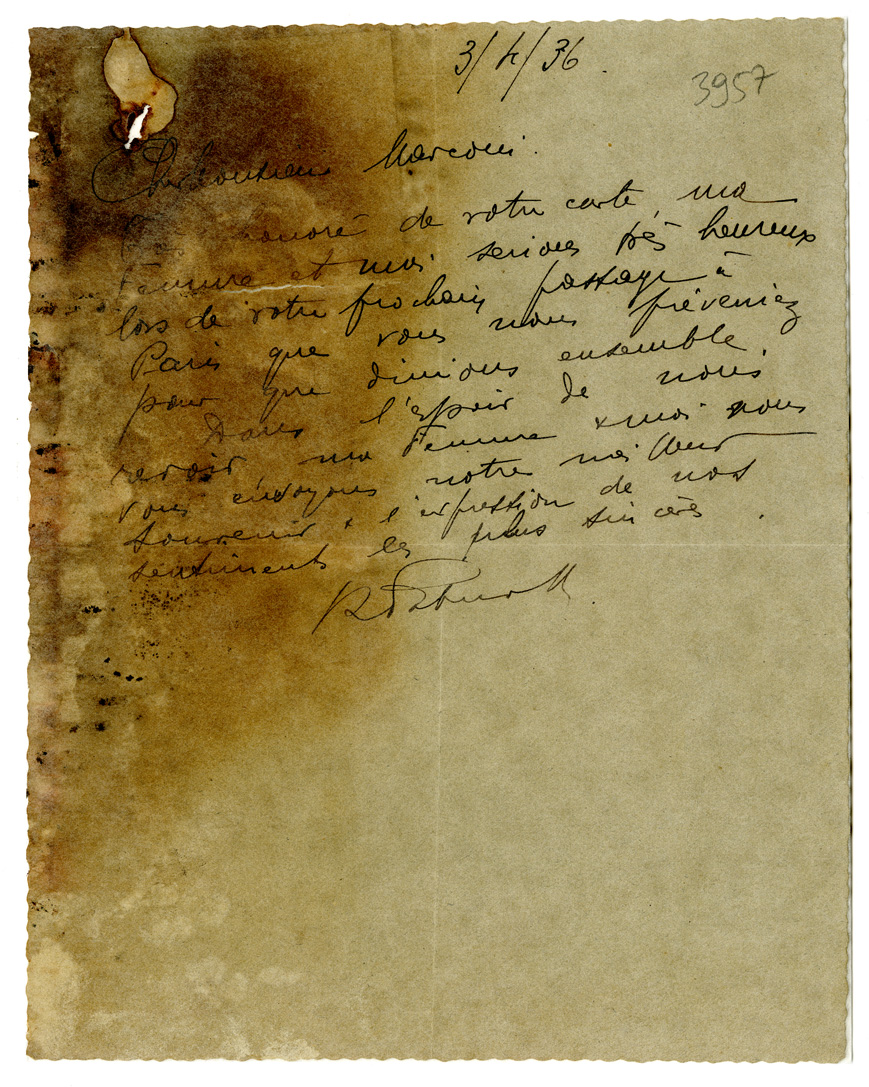 3/4/36.
3957
Cher Monsieur Marconi.
honoré de votre carte, ma
femme et moi serions très heureux
lors de votre prochain passage à
Paris que vous nous préveniez
pour que dinions ensemble.
Dans l'espoir de nous
revoir ma femme & moi nous
vous envoyons notre meilleur
souvenir & l'expression de nos
sentiments les plus sincères.